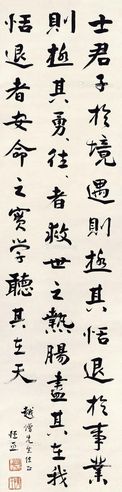 士君子於境遇則極其恬退於事業
則極其勇往者救世之熱腸盡其在我
恬退者安命之實學聽其在天
越僧先生法正